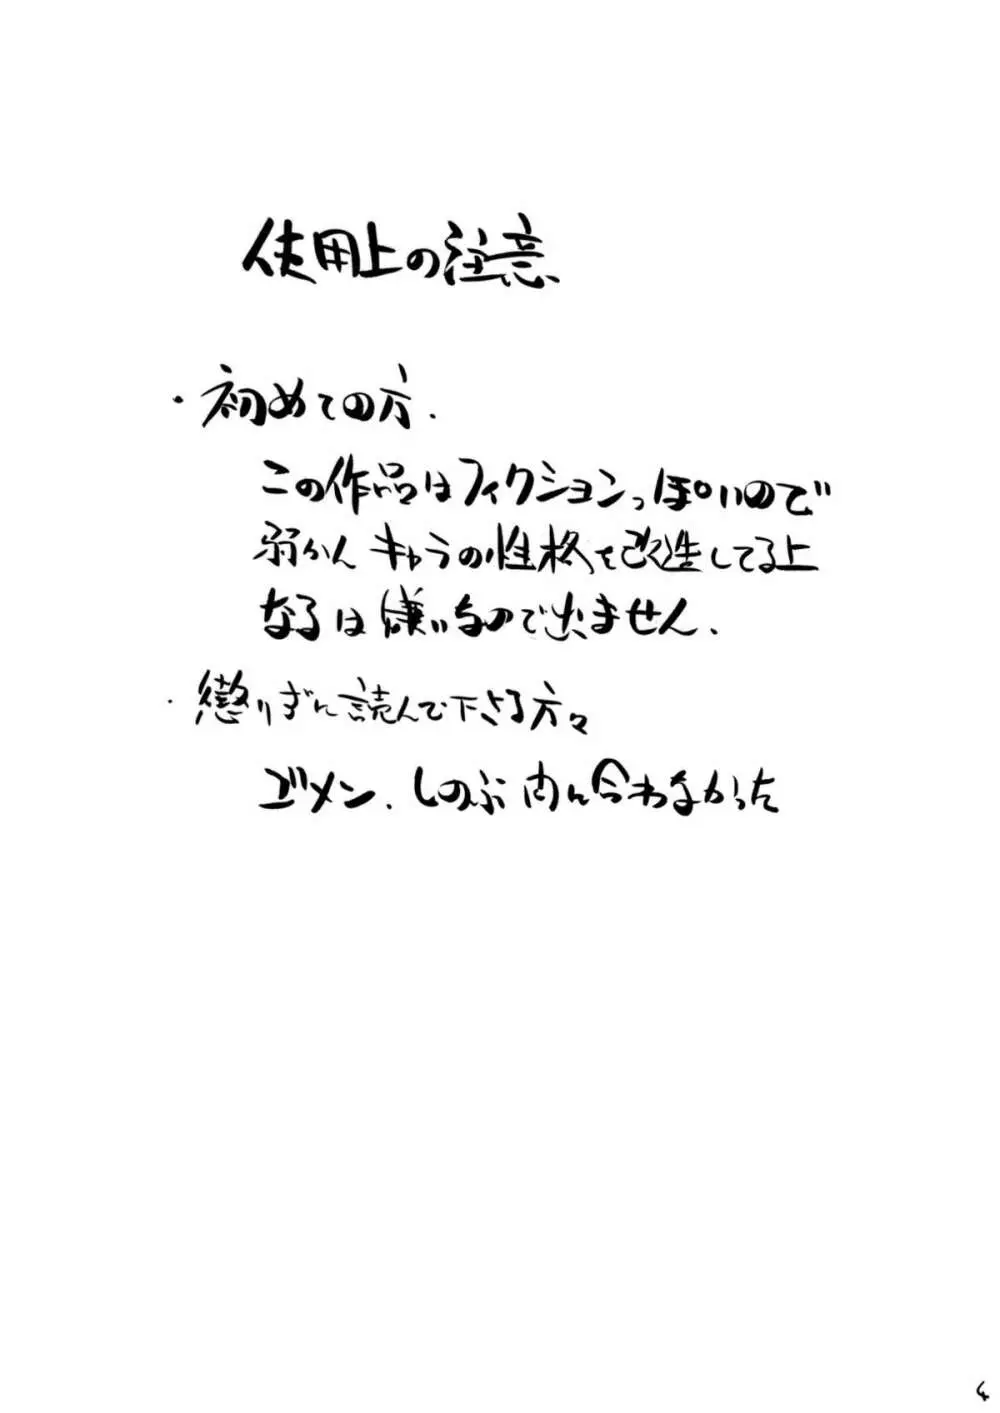 使用上の注意
・初めての方.
この作品はフィクションっぽいので
弱かんキャラの性格を改造してる上
なるは嫌いなので出ません.
・懲りずに読んで下さる方々
ゴメン.しのぶ内に合わなかった
4